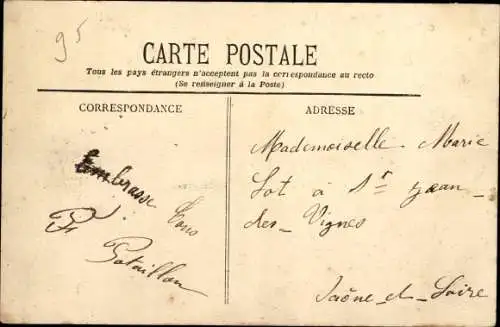 95
CARTE POSTALE
Tous les pays étrangers n'acceptent pas la correspondance au recto
(Se renseigner à la Poste)
CORRESPONDANCE
Embrasse Tous
Bataillon
ADRESSE
Mademoiselle Marie
Lot à St Jean
des-Vignes
Saône-et-Loire